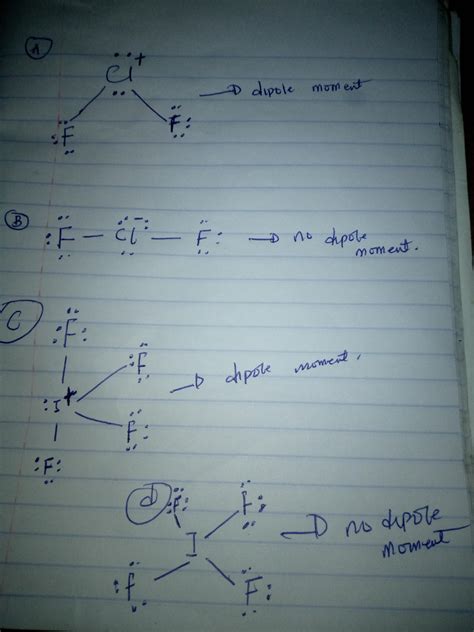 A
Cl +
F F → dipole moment
B
F — Cl⁻ — F → no dipole
moment.
C
F
F
I + → dipole moment.
F
F
d
F F
I → no dipole
moment
F F